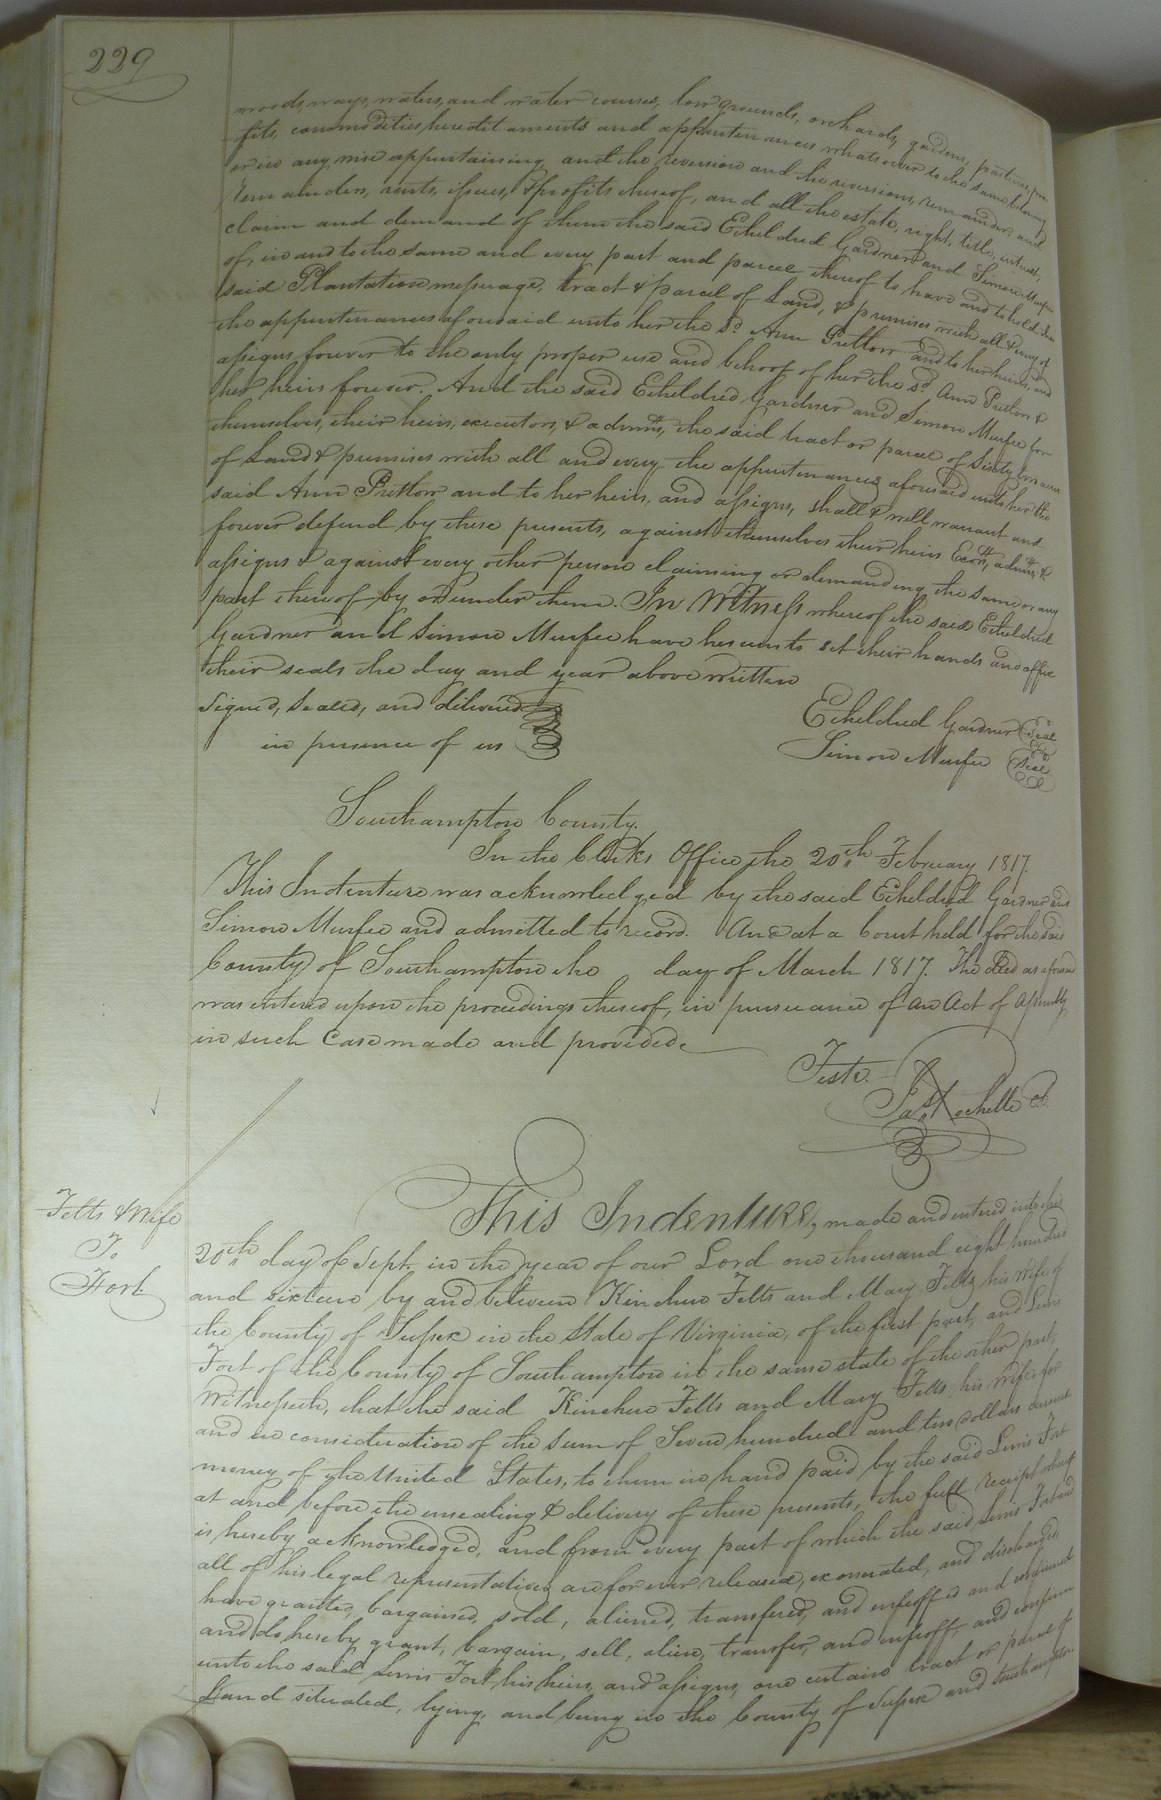 229
woods, ways, waters, and water courses, low grounds, orchards, gardens, pastures, pro
fits, commodities, heredit aments and appurtenances whatsoever to the same belonging
or in any wise appurtaining, and the reversion and the reversions, remainder, and
remainders, rents, issues, & profits thereof, and all the estate, right, title, interest,
claim and demand of them the said Etheldred Gardner and Simon Murfee
of, in and to the same and every part and parcel thereof to have and to hold the
said Plantation messuage, tract & parcel of Land, & premises with all & every of
the appurtenances aforesaid unto her the sd. Ann Pretlow and to her heirs and
assigns forever to the only proper use and behoof of her the sd. Ann Pretlow &
her heirs forever. And the said Etheldred Gardner and Simon Murfee for
themselves, their heirs, executors, & admrs, the said tract or parcel of Sixty acres
of Land & premises with all and every the appurtenances aforesaid unto her the
said Ann Pretlow and to her heirs, and assigns, shall & will warrant and
forever defend by these presents, against themselves their heirs Exors, admrs, &
assigns & against every other person claiming or demanding the same or any
part thereof by or under them. In Witness whereof the said Etheldred
Gardner and Simon Murfee have hereunto set their hands and affix
their seals the day and year above written
Signed, Sealed, and delivered
in presence of us
Etheldred Gardner Seal
Simon Murfee Seal
Southampton County.
In the Clerks Office the 20th February 1817.
This Indenture was acknowledged by the said Etheldred Gardner and
Simon Murfee and admitted to record. And at a Court held for the said
County of Southampton the day of March 1817. The deed as aforesaid
was entered upon the proceedings thereof, in pursuance of an Act of Assembly
in such case made and provided.
Teste.
Jas Rochelle Cl.
Felts & Wife
To
Fort.
This Indenture, made and entered into this
20th day of Sept. in the year of our Lord one thousand eight hundred
and sixteen by and between Kinchen Felts and Mary Felts his wife of
the County of Sussex in the State of Virginia, of the first part, and Lewis
Fort of the County of Southampton in the same state of the other part,
Witnesseth, that the said Kinchen Felts and Mary Felts, his wife for
and in consideration of the sum of Seven hundred and ten dollars current
money of the United States, to them in hand paid by the said Lewis Fort
at and before the ensealing & delivery of these presents, the full receipt whereof
is hereby acknowledged, and from every part of which the said Lewis Fort and
all of his legal representatives are forever released, exonerated, and discharged,
have granted, bargained, sold, aliened, transfered, and enfeoffed and confirmed
and do hereby grant, bargain, sell, alien, transfer, and enfeoff, and confirm
unto the said Lewis Fort his heirs, and assigns, one certain tract or parcel of
Land situated, lying, and being in the County of Sussex and Southampton